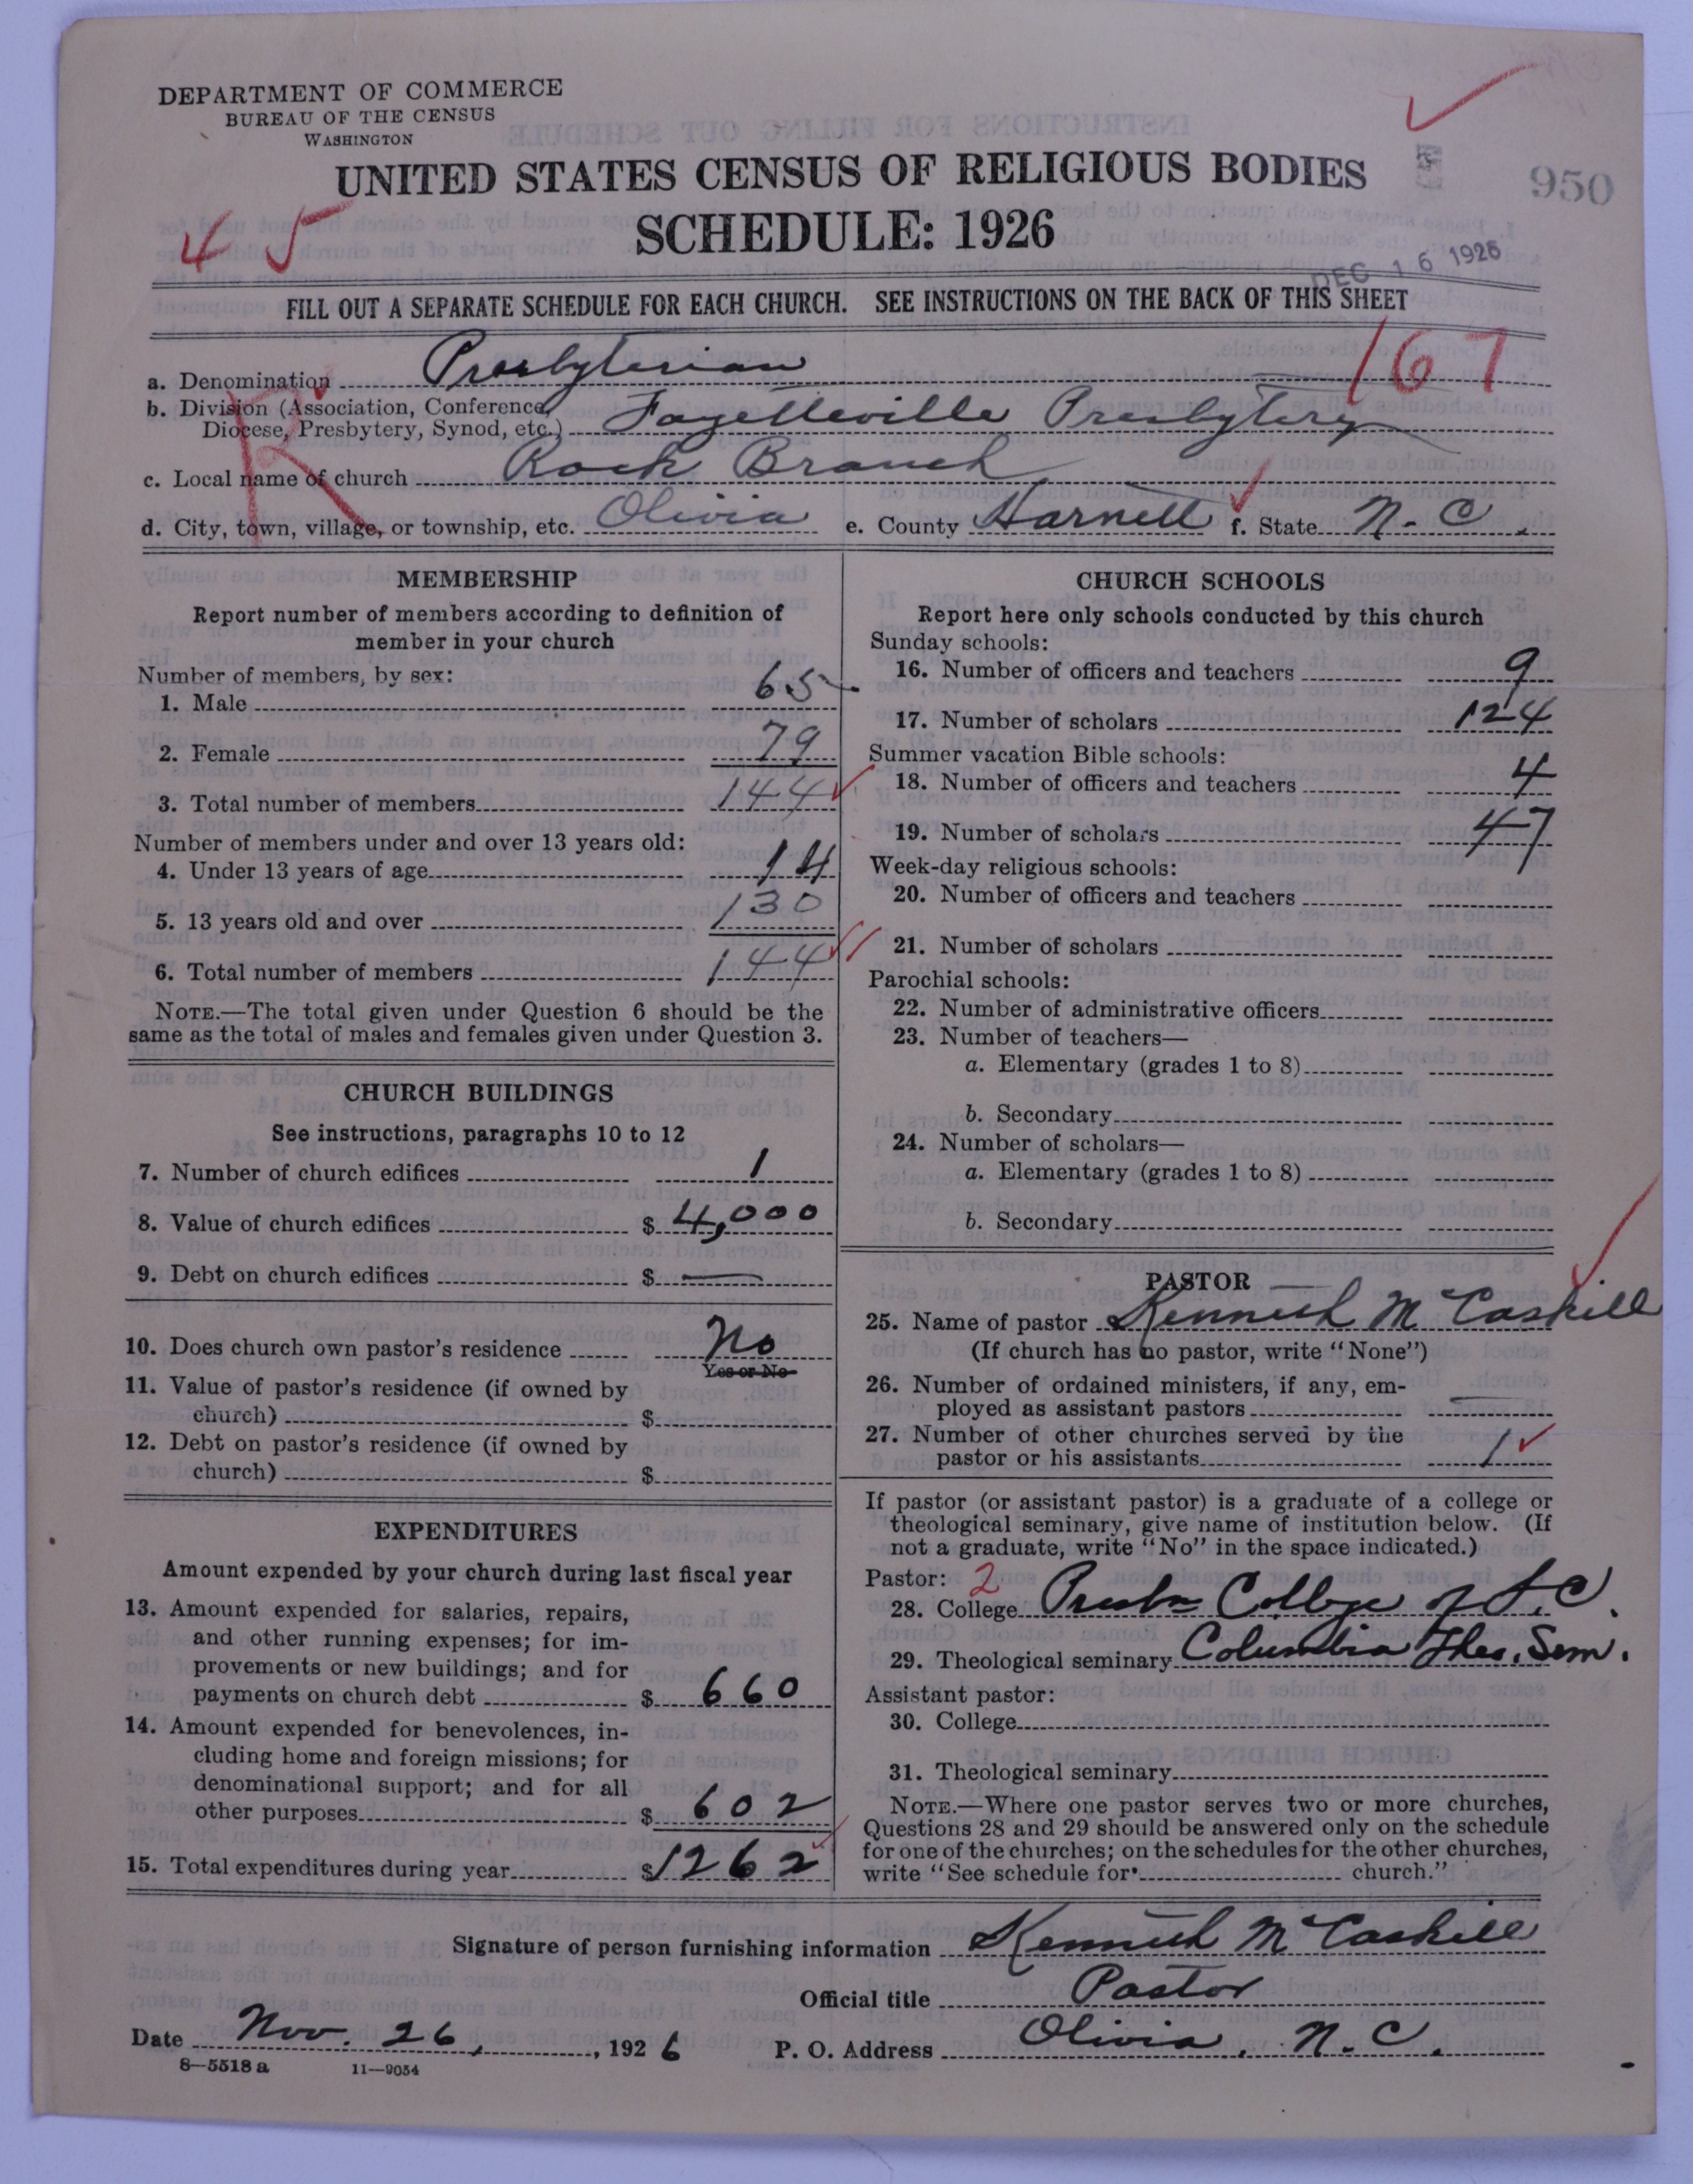 DEPARTMENT OF COMMERCE
BUREAU OF THE CENSUS
WASHINGTON
UNITED STATES CENSUS OF RELIGIOUS BODIES
SCHEDULE: 1926
950
45
DEC 16 1926
FILL OUT A SEPARATE SCHEDULE FOR EACH CHURCH. SEE INSTRUCTIONS ON THE BACK OF THIS SHEET
167
R
a. Denomination Presbyterian
b. Division (Association, Conference,
Diocese, Presbytery, Synod, etc.) Fayetteville Presbytery
c. Local name of church Rock Branch
d. City, town, village, or township, etc. Olivia e. County Harnett f. State N. C.
MEMBERSHIP
Report number of members according to definition of
member in your church
Number of members, by sex:
1. Male 65
2. Female 79
3. Total number of members 144
Number of members under and over 13 years old:
4. Under 13 years of age 14
5. 13 years old and over 130
6. Total number of members 144
NOTE.—The total given under Question 6 should be the
same as the total of males and females given under Question 3.
CHURCH BUILDINGS
See instructions, paragraphs 10 to 12
7. Number of church edifices 1
8. Value of church edifices $ 4,000
9. Debt on church edifices $ —
10. Does church own pastor's residence No
Yes or No
11. Value of pastor's residence (if owned by
church) $
12. Debt on pastor's residence (if owned by
church) $
EXPENDITURES
Amount expended by your church during last fiscal year
13. Amount expended for salaries, repairs,
and other running expenses; for im-
provements or new buildings; and for
payments on church debt $ 660
14. Amount expended for benevolences, in-
cluding home and foreign missions; for
denominational support; and for all
other purposes $ 602
15. Total expenditures during year $ 1262
CHURCH SCHOOLS
Report here only schools conducted by this church
Sunday schools:
16. Number of officers and teachers 9
17. Number of scholars 124
Summer vacation Bible schools:
18. Number of officers and teachers 4
19. Number of scholars 47
Week-day religious schools:
20. Number of officers and teachers
21. Number of scholars
Parochial schools:
22. Number of administrative officers
23. Number of teachers—
a. Elementary (grades 1 to 8)
b. Secondary
24. Number of scholars—
a. Elementary (grades 1 to 8)
b. Secondary
PASTOR
25. Name of pastor Kenneth McCaskill
(If church has no pastor, write "None")
26. Number of ordained ministers, if any, em-
ployed as assistant pastors —
27. Number of other churches served by the
pastor or his assistants 1
If pastor (or assistant pastor) is a graduate of a college or
theological seminary, give name of institution below. (If
not a graduate, write "No" in the space indicated.)
Pastor: 2
28. College Presbn College of S.C.
29. Theological seminary Columbia Theo. Sem.
Assistant pastor:
30. College
31. Theological seminary
NOTE.—Where one pastor serves two or more churches,
Questions 28 and 29 should be answered only on the schedule
for one of the churches; on the schedules for the other churches,
write "See schedule for church."
Signature of person furnishing information Kenneth McCaskill
Official title Pastor
Date Nov. 26, 1926 P. O. Address Olivia, N.C.
8—5518 a 11—9054